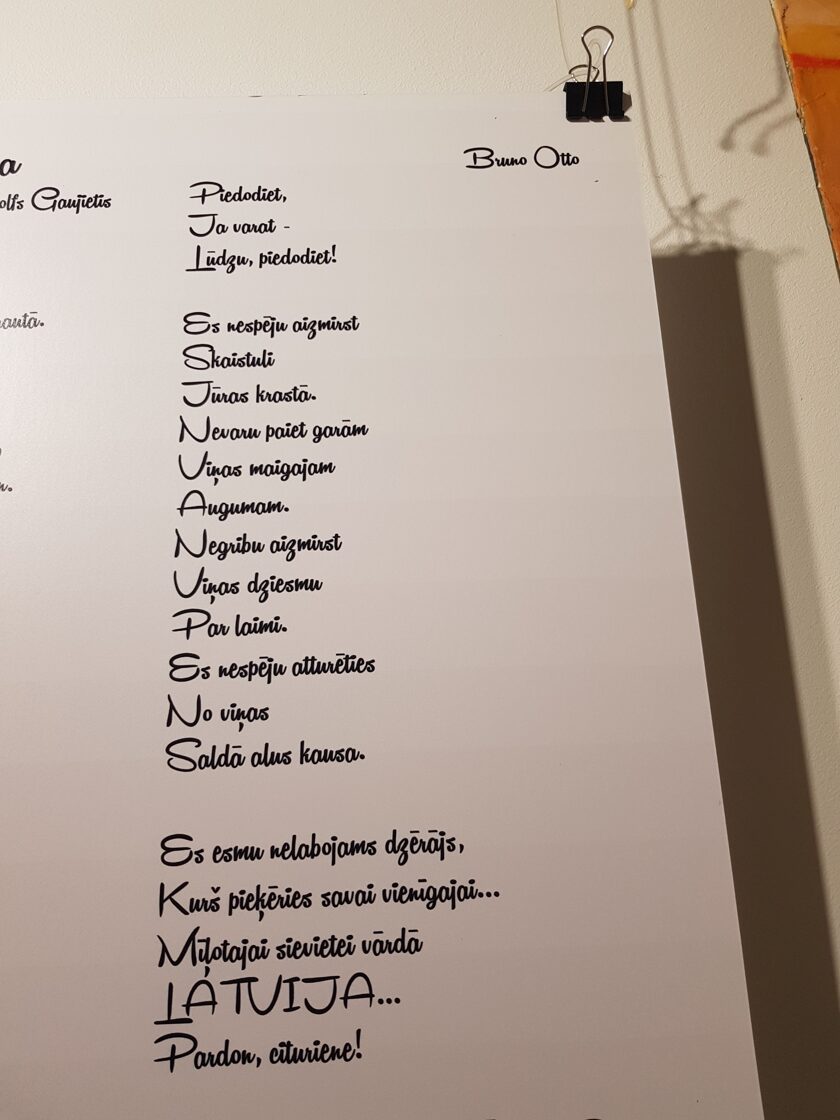 Bruno Otto
Gaujietis
Piedodiet,
Ja varat -
Lūdzu, piedodiet!
Es nespēju aizmirst
Skaistuli
Jūras krastā.
Nevaru paiet garām
Viņas maigajam
Augumam.
Negribu aizmirst
Viņas dziesmu
Par laimi.
Es nespēju atturēties
No viņas
Saldā alus kausa.
Es esmu nelabojams dzērājs,
Kurš pieķēries savai vienīgajai...
Mīļotajai sievietei vārdā
LATVIJA...
Pardon, cituriene!